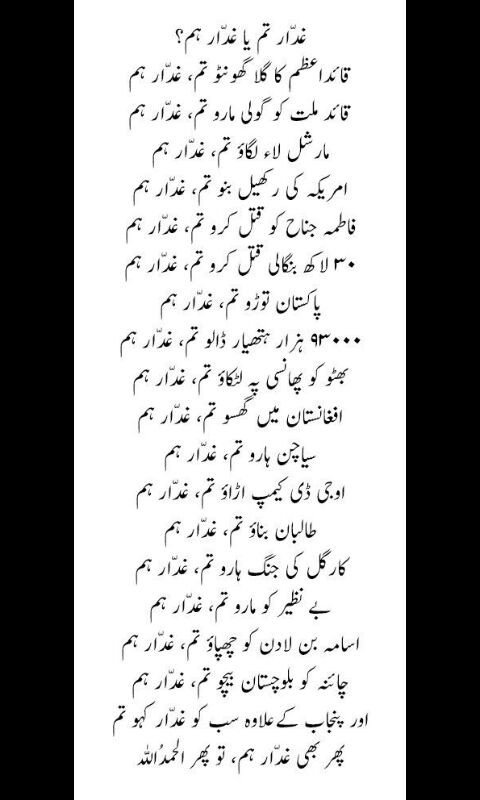 غدّار تم یا غدّار ہم؟
قائداعظم کا گلا گھونٹو تم، غدّار ہم
قائد ملت کو گولی مارو تم، غدّار ہم
مارشل لاء لگاؤ تم، غدّار ہم
امریکہ کی رکھیل بنو تم، غدّار ہم
فاطمہ جناح کو قتل کرو تم، غدّار ہم
۳۰ لاکھ بنگالی قتل کرو تم، غدّار ہم
پاکستان توڑو تم، غدّار ہم
۹۳۰۰۰ ہزار ہتھیار ڈالو تم، غدّار ہم
بھٹو کو پھانسی پہ لٹکاؤ تم، غدّار ہم
افغانستان میں گھسو تم، غدّار ہم
سیاچن ہارو تم، غدّار ہم
اوجی ڈی کیمپ اڑاؤ تم، غدّار ہم
طالبان بناؤ تم، غدّار ہم
کارگل کی جنگ ہارو تم، غدّار ہم
بے نظیر کو مارو تم، غدّار ہم
اسامہ بن لادن کو چھپاؤ تم، غدّار ہم
چائنہ کو بلوچستان بیچو تم، غدّار ہم
اور پنجاب کے علاوہ سب کو غدّار کہو تم
پھر بھی غدّار ہم، تو پھر الحمدُاللہ